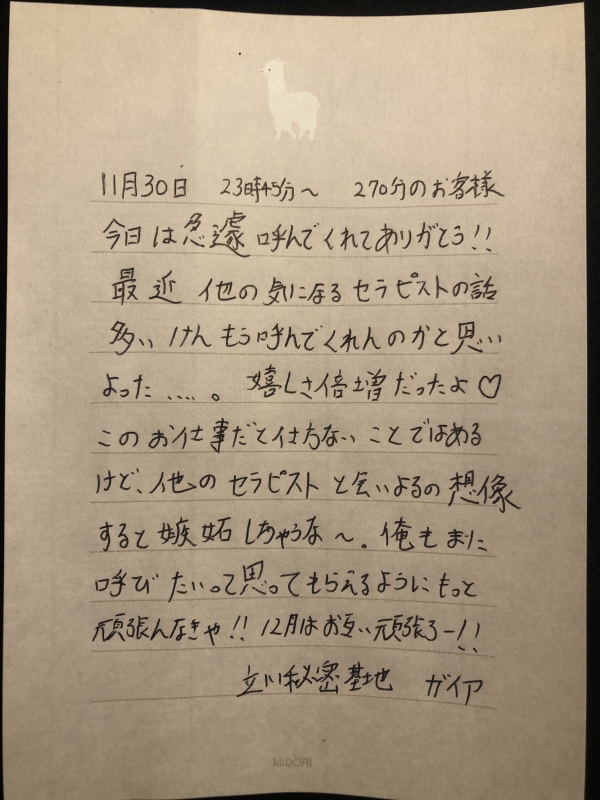 11月30日 23時45分～ 270分のお客様
今日は急遽呼んでくれてありがとう!!
最近 他の気になるセラピストの話
多いけんもう呼んでくれんのかと思い
よった....。嬉しさ倍増だったよ♡
このお仕事だと仕方ないことではある
けど、他のセラピストと会いよるの想像
すると嫉妬しちゃうな～。俺もまた
呼びたいって思ってもらえるようにもっと
頑張んなきゃ!! 12月はお互い頑張ろー!!
立川秘密基地 ガイア
MIDORI